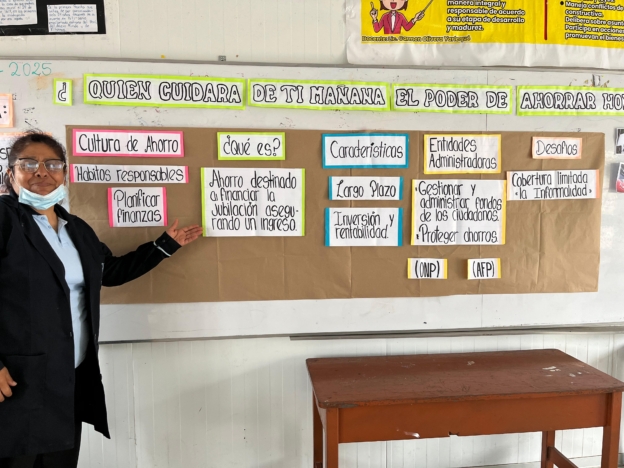 manera integral y
responsable de acuerdo
a su etapa de desarrollo
y madurez.
Maneja conflictos de
constructiva.
Delibera sobre asuntos
Participa en acciones
promueven el bienestar
2025
¿ QUIEN CUIDARA DE TI MAÑANA EL PODER DE AHORRAR HO
Cultura de Ahorro
Habitos responsables
Planificar
finanzas
¿Qué es?
Ahorro destinado
a financiar la
Jubilación asegu-
rando un ingreso.
Características
Largo Plazo
Inversión y
rentabilidad.
Entidades
Administradoras
•Gestionar y
administrar fondos
de los ciudadanos.
•Proteger ahorros.
(ONP)
(AFP)
Desafíos
Cobertura limitada
la Informalidad